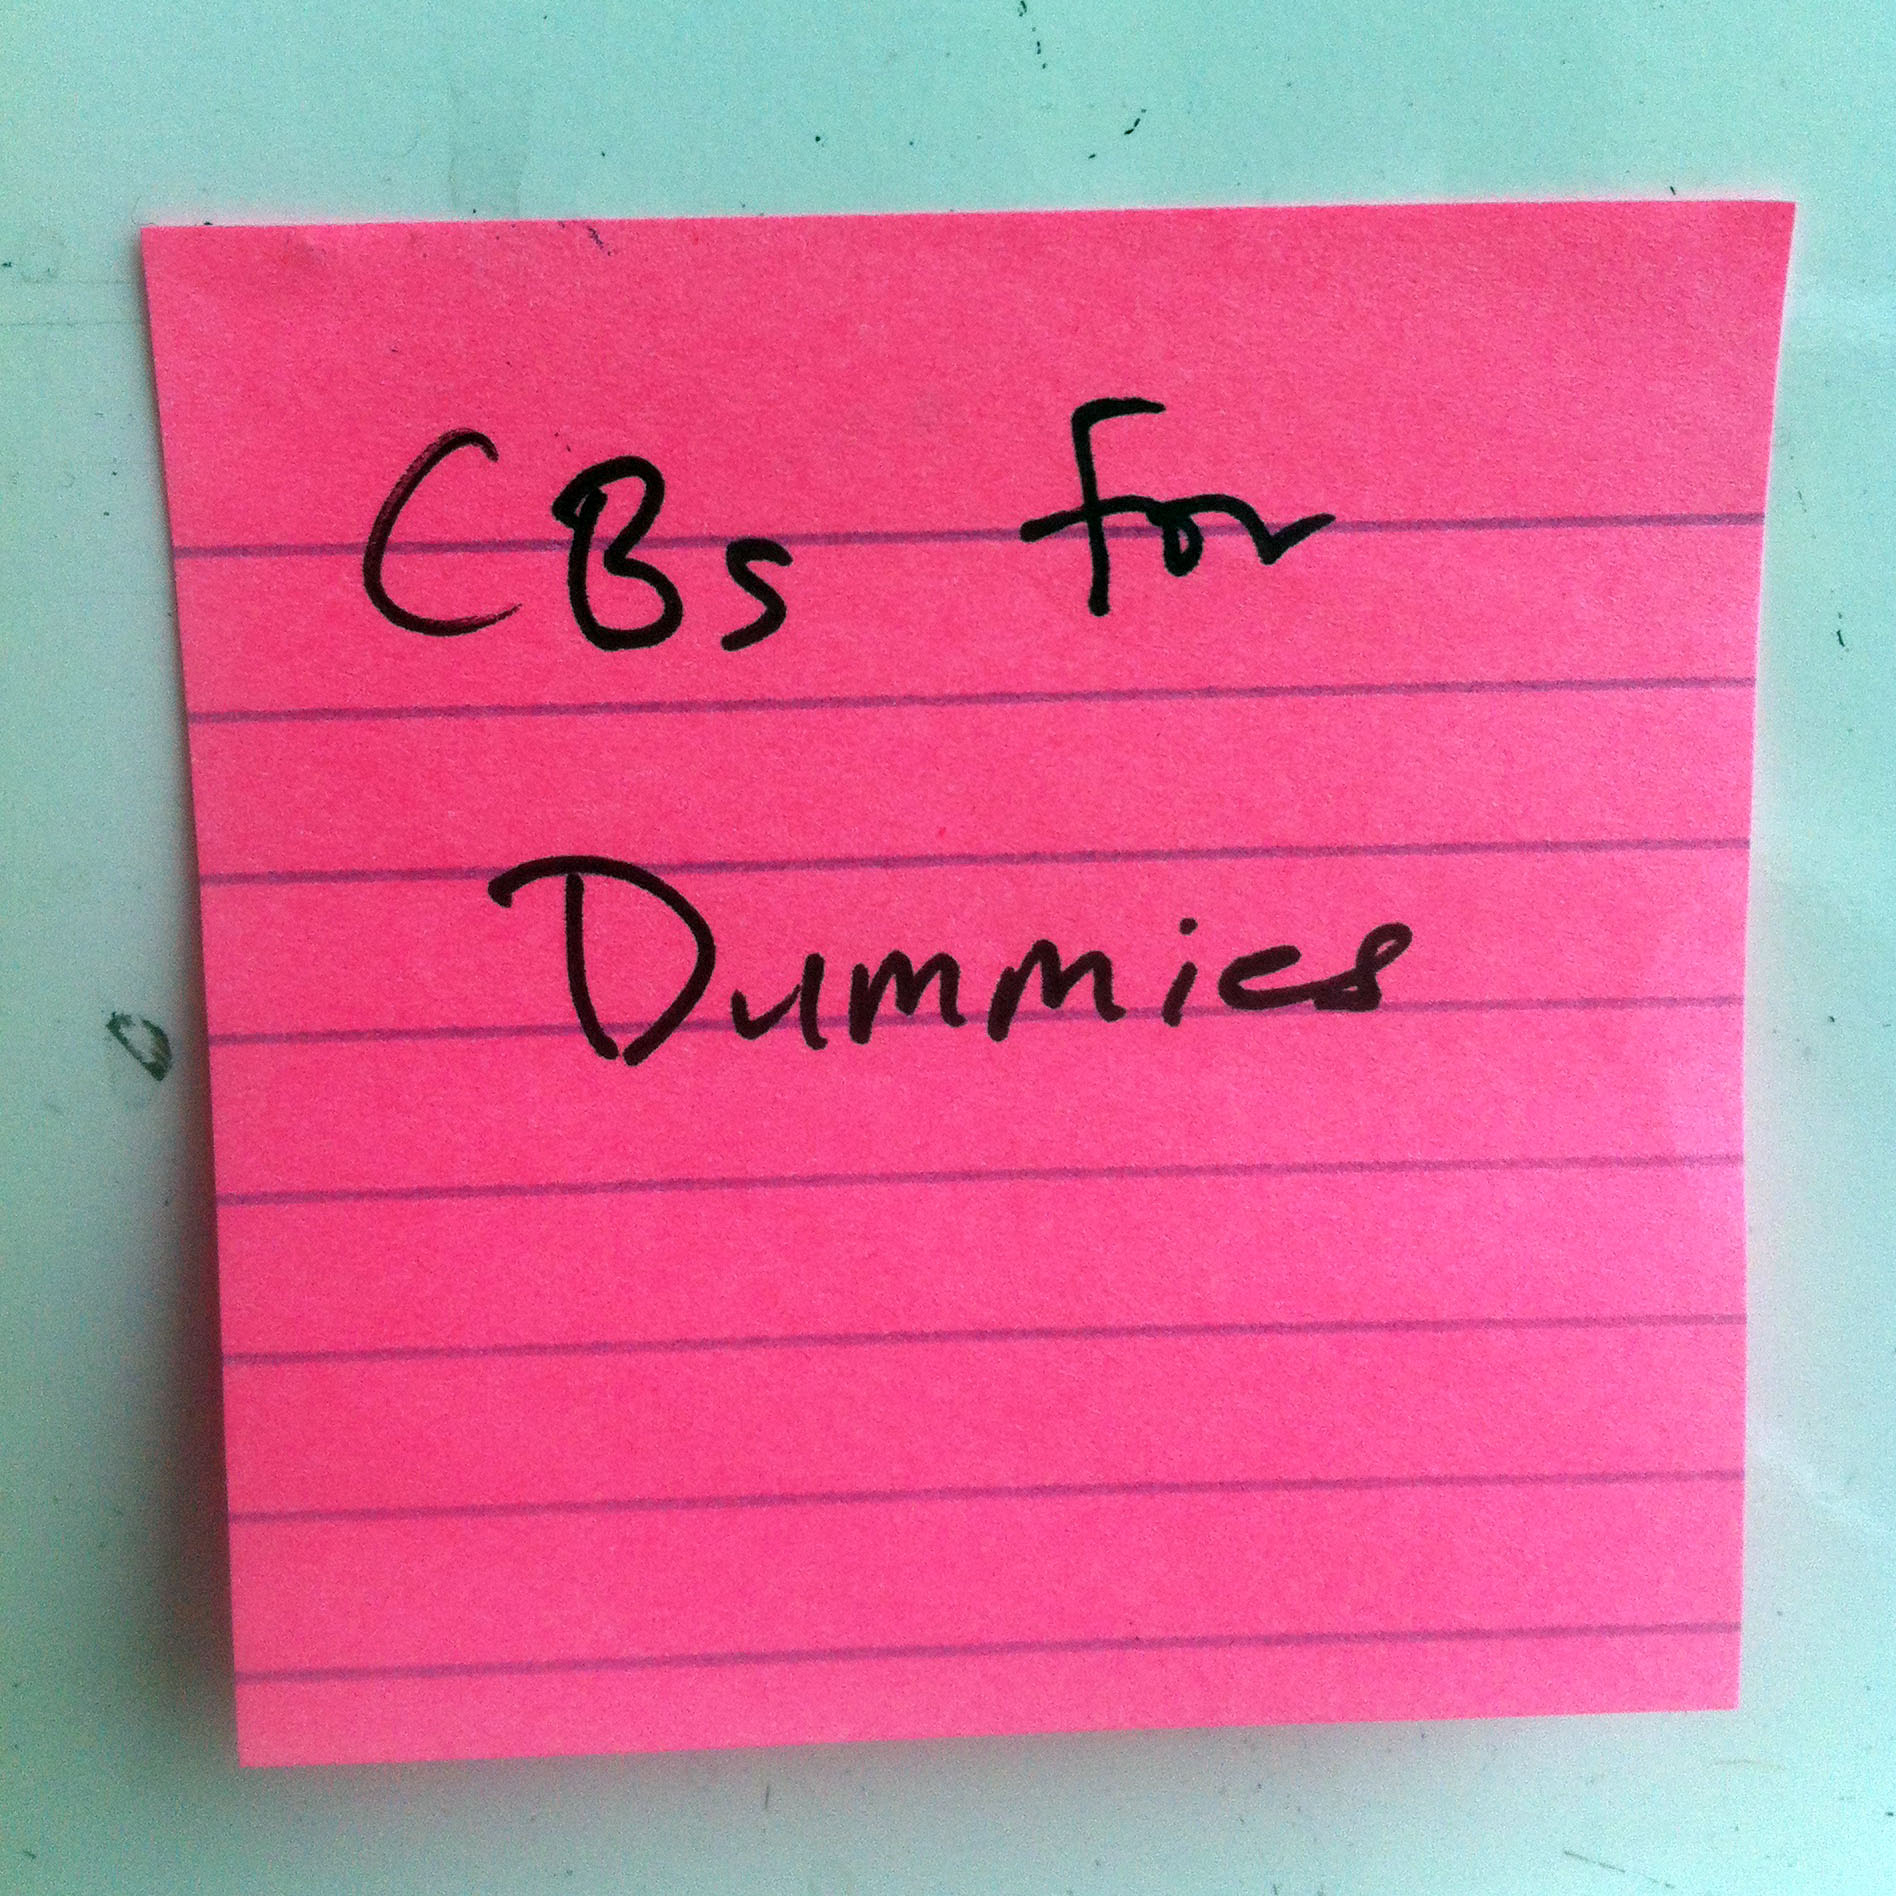 CBs for
Dummies